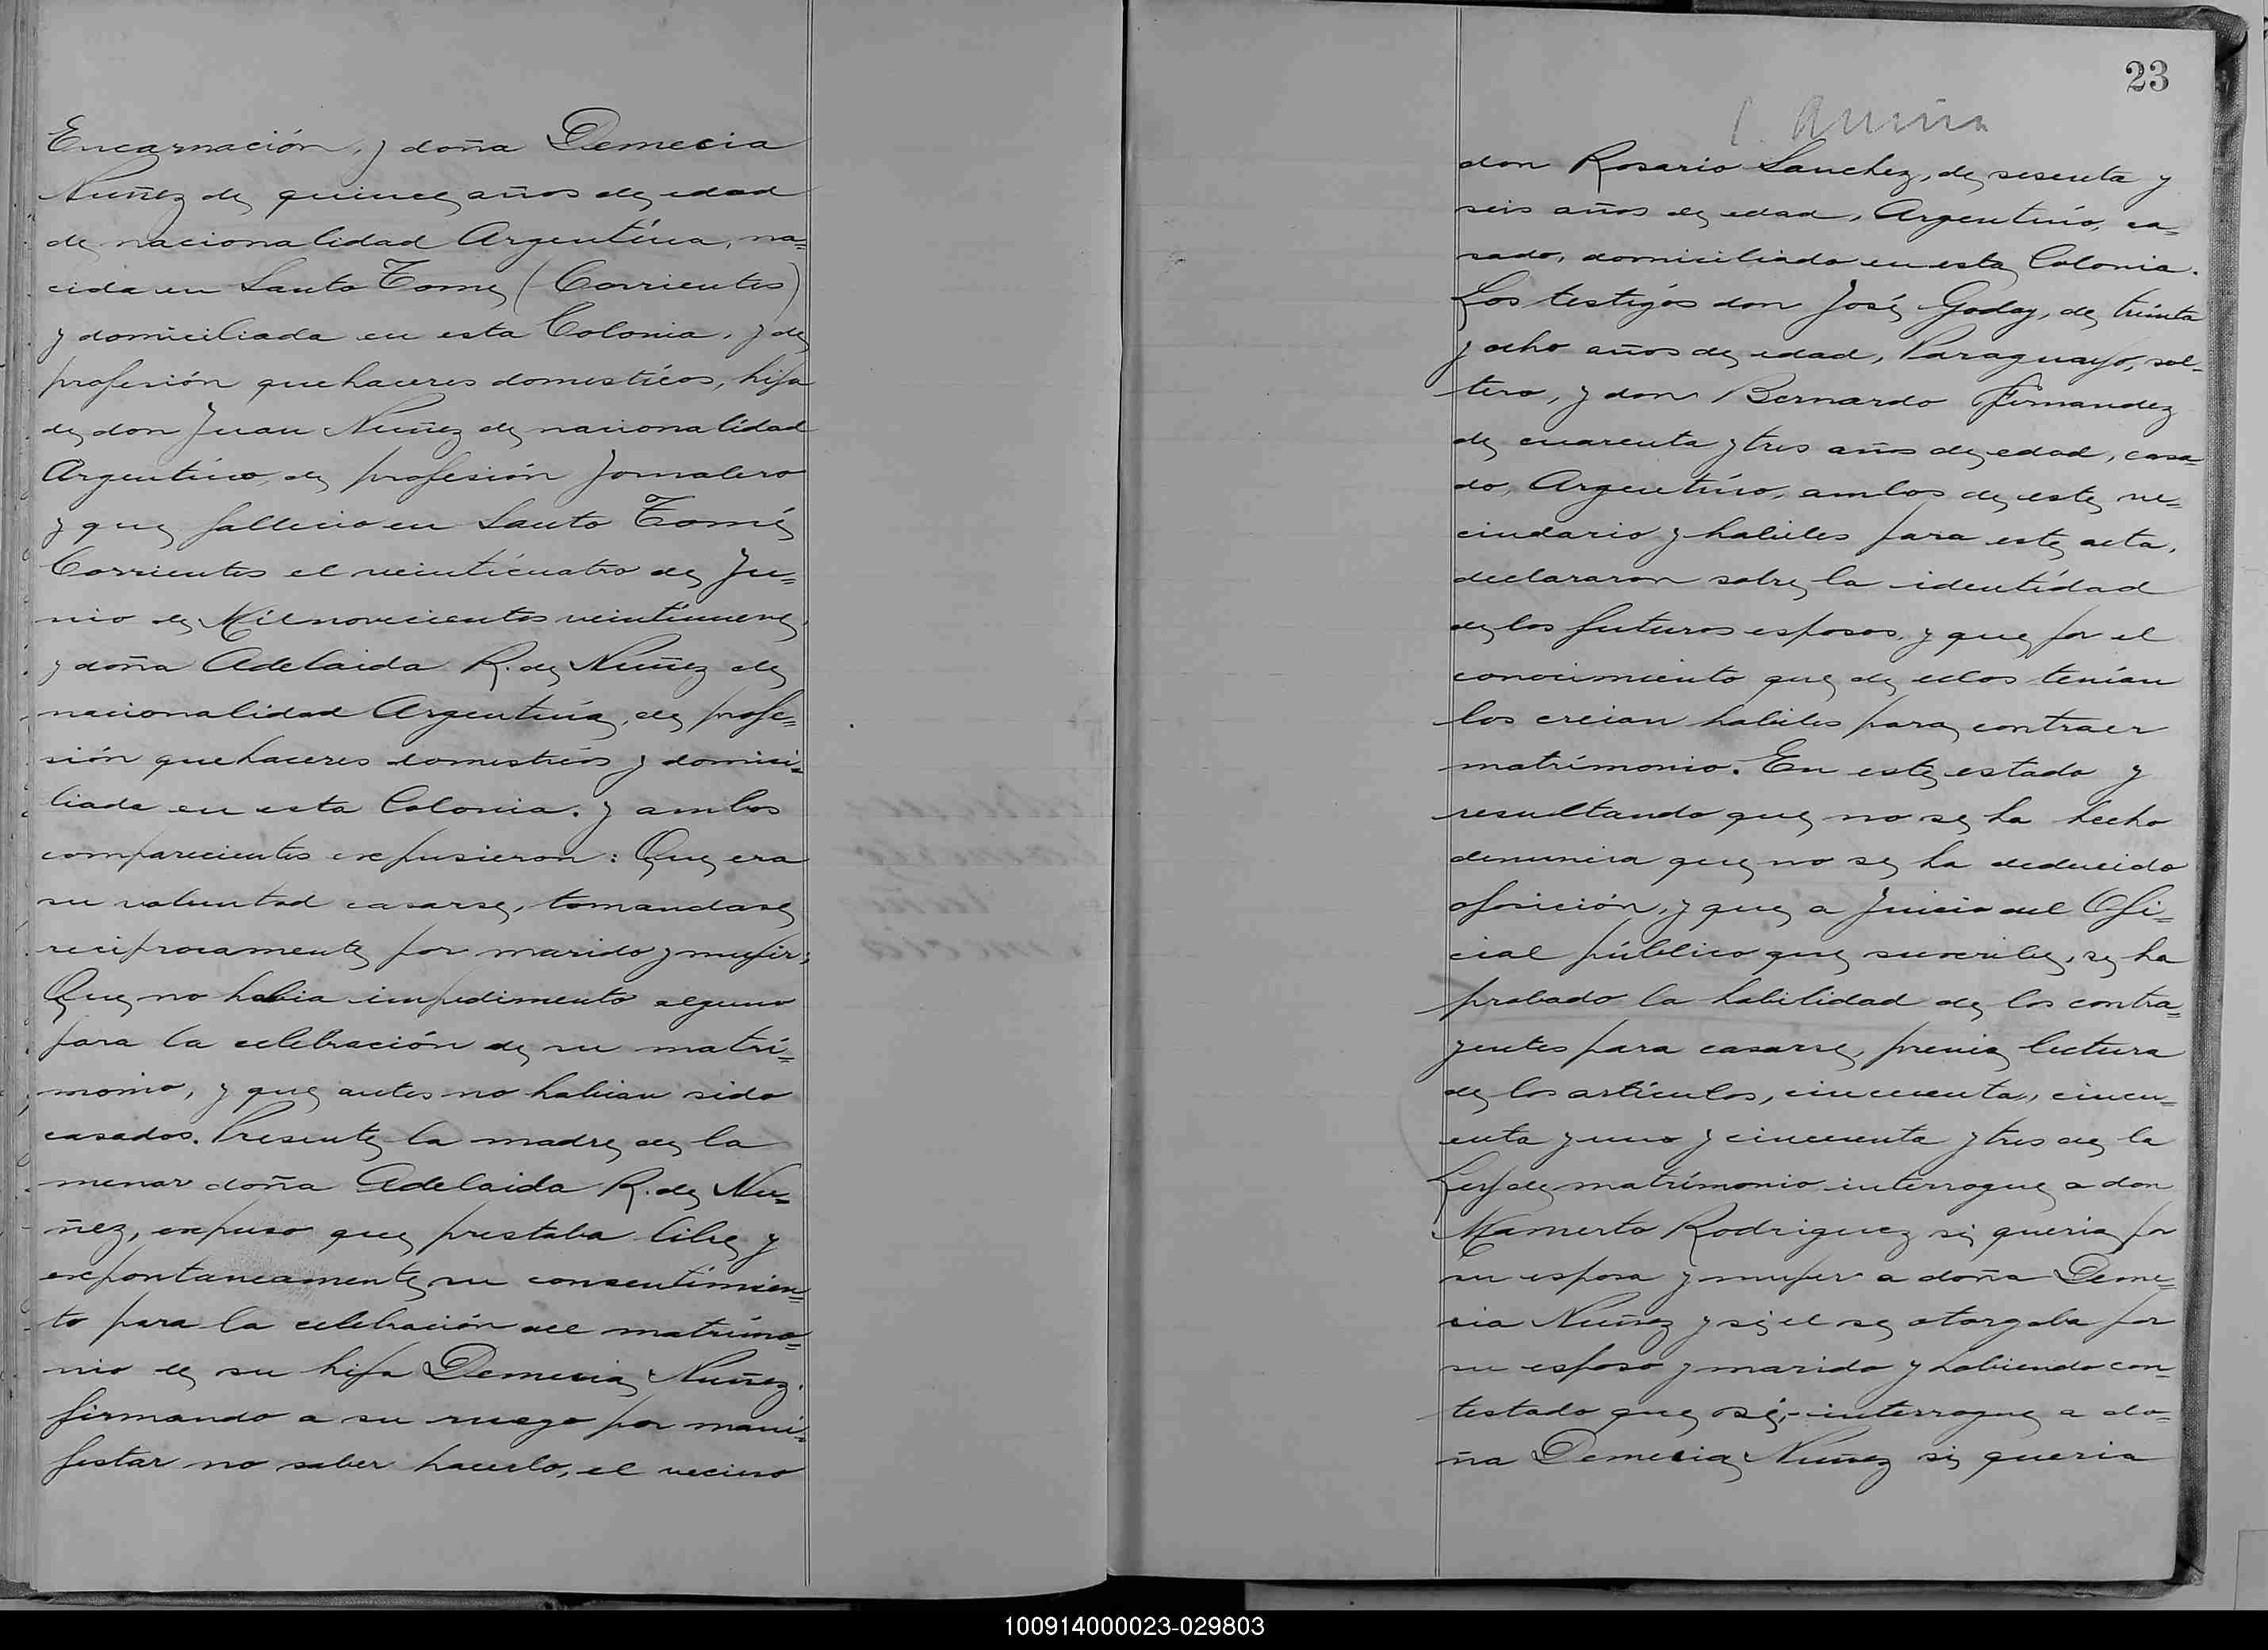 Encarnación, y doña Demecia
Nuñez de quince años de edad
de nacionalidad Argentina, na=
cida en Santo Tome (Corrientes)
y domiciliada en esta Colonia, y de
profesión quehaceres domesticos, hija
de don Juan Nuñez de nacionalidad
Argentino, de profesión Jornalero
y que fallecio en Santo Tomé
Corrientes el veinticuatro de Ju=
nio de Mil novecientos veintinueve,
y doña Adelaida R. de Nuñez de
nacionalidad Argentina, de profe=
sión quehaceres domesticos y domici=
liada en esta Colonia. y ambos
comparecientes expusieron: Que era
su voluntad casarse, tomandose
reciprocamente por marido y mujer;
Que no habia impedimento alguno
para la celebración de su matri=
monio, y que antes no habian sido
casados. Presente la madre de la
menor doña Adelaida R. de Nu=
ñez, expuso que prestaba libre y
expontaneamente su consentimien=
to para la celebración del matrimo=
nio de su hija Demecia Nuñez.
firmando a su ruego por mani=
festar no saber hacerlo, el vecino
23
don Rosario Sanchez, de sesenta y
seis años de edad, Argentino, ca=
sado, domiciliado en esta Colonia.
Los testigos don José Godoy, de trinta
y ocho años de edad, Paraguayo, sol=
tero, y don Bernardo Fernandez
de cuarenta y tres años de edad, casa=
do, Argentino, ambos de este ve=
cindario y habiles para este acta,
declararon sobre la identidad
de los futuros esposos, y que por el
conocimiento que de ellos tenían
los creian habiles para contraer
matrimonio. En este estado y
resultando que no se ha hecho
denuncia que no se ha deducido
oposición, y que a Juicio del Ofi=
cial público que suscribe, se ha
probado la habilidad de los contra=
yentes para casarse, previa lectura
de los artículos, cincuenta, cincu=
enta y uno y cincuenta y tres de la
Ley de matrimonio interrogue a don
Mamerto Rodriguez si queria por
su esposa y mujer a doña Deme=
cia Nuñez y si el se otorgaba por
su esposo y marido y habiendo con=
testado que si, interrogue a do=
ña Demecia Nuñez si queria
100914000023-029803